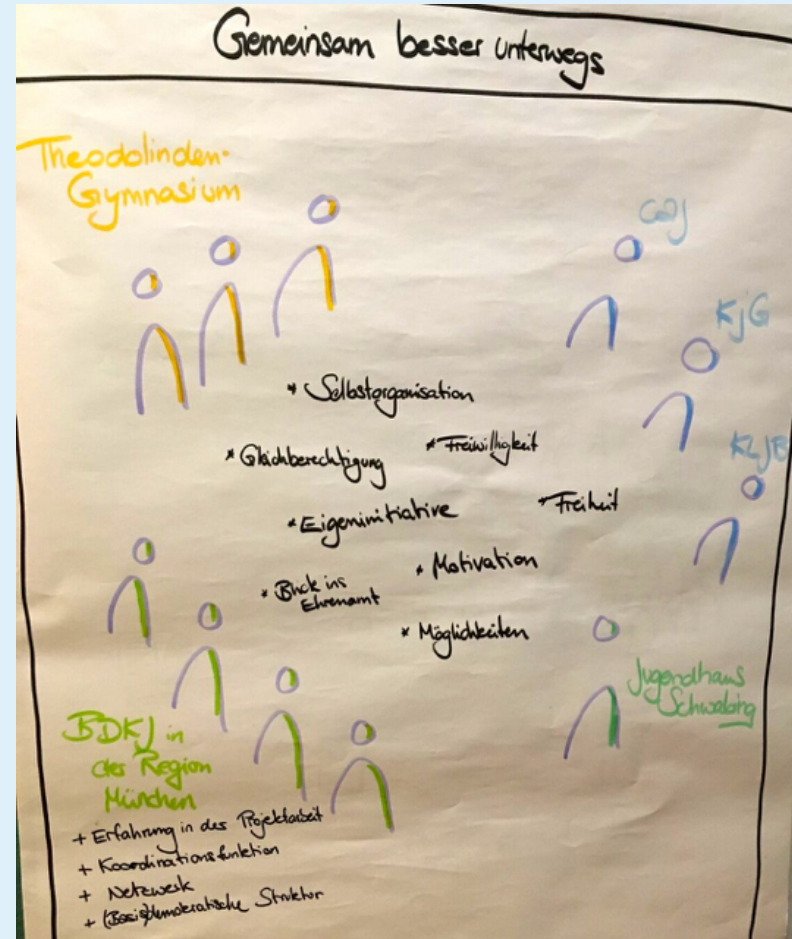 Gemeinsam besser unterwegs
Theodolinden-
Gymnasium
GCL
KjG
KLJB
* Selbstorganisation
* Gleichberechtigung
* Freiwilligkeit
* Eigeninitiative
* Freiheit
* Blick ins
Ehrenamt
* Motivation
* Möglichkeiten
Jugendhaus
Schwabing
BDKJ in
der Region
München
+ Erfahrung in der Projektarbeit
+ Koordinationsfunktion
+ Netzwerk
+ (Basis)demokratische Struktur